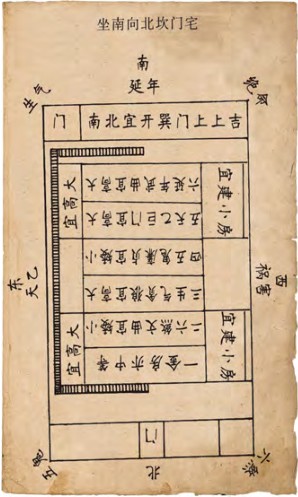 坐南向北坎门宅
南
延年
生气
绝命
门
南北宜开巽门上上吉
宜高大
六延年武曲宜高大
五天乙巨门宜高大
宜建小房
四五鬼廉贞宜矮小
三生气贪狼宜高大
东
天乙
西
祸害
宜高大
二六煞文曲宜矮小
一金房亦中等
宜建小房
门
五鬼
北
六煞